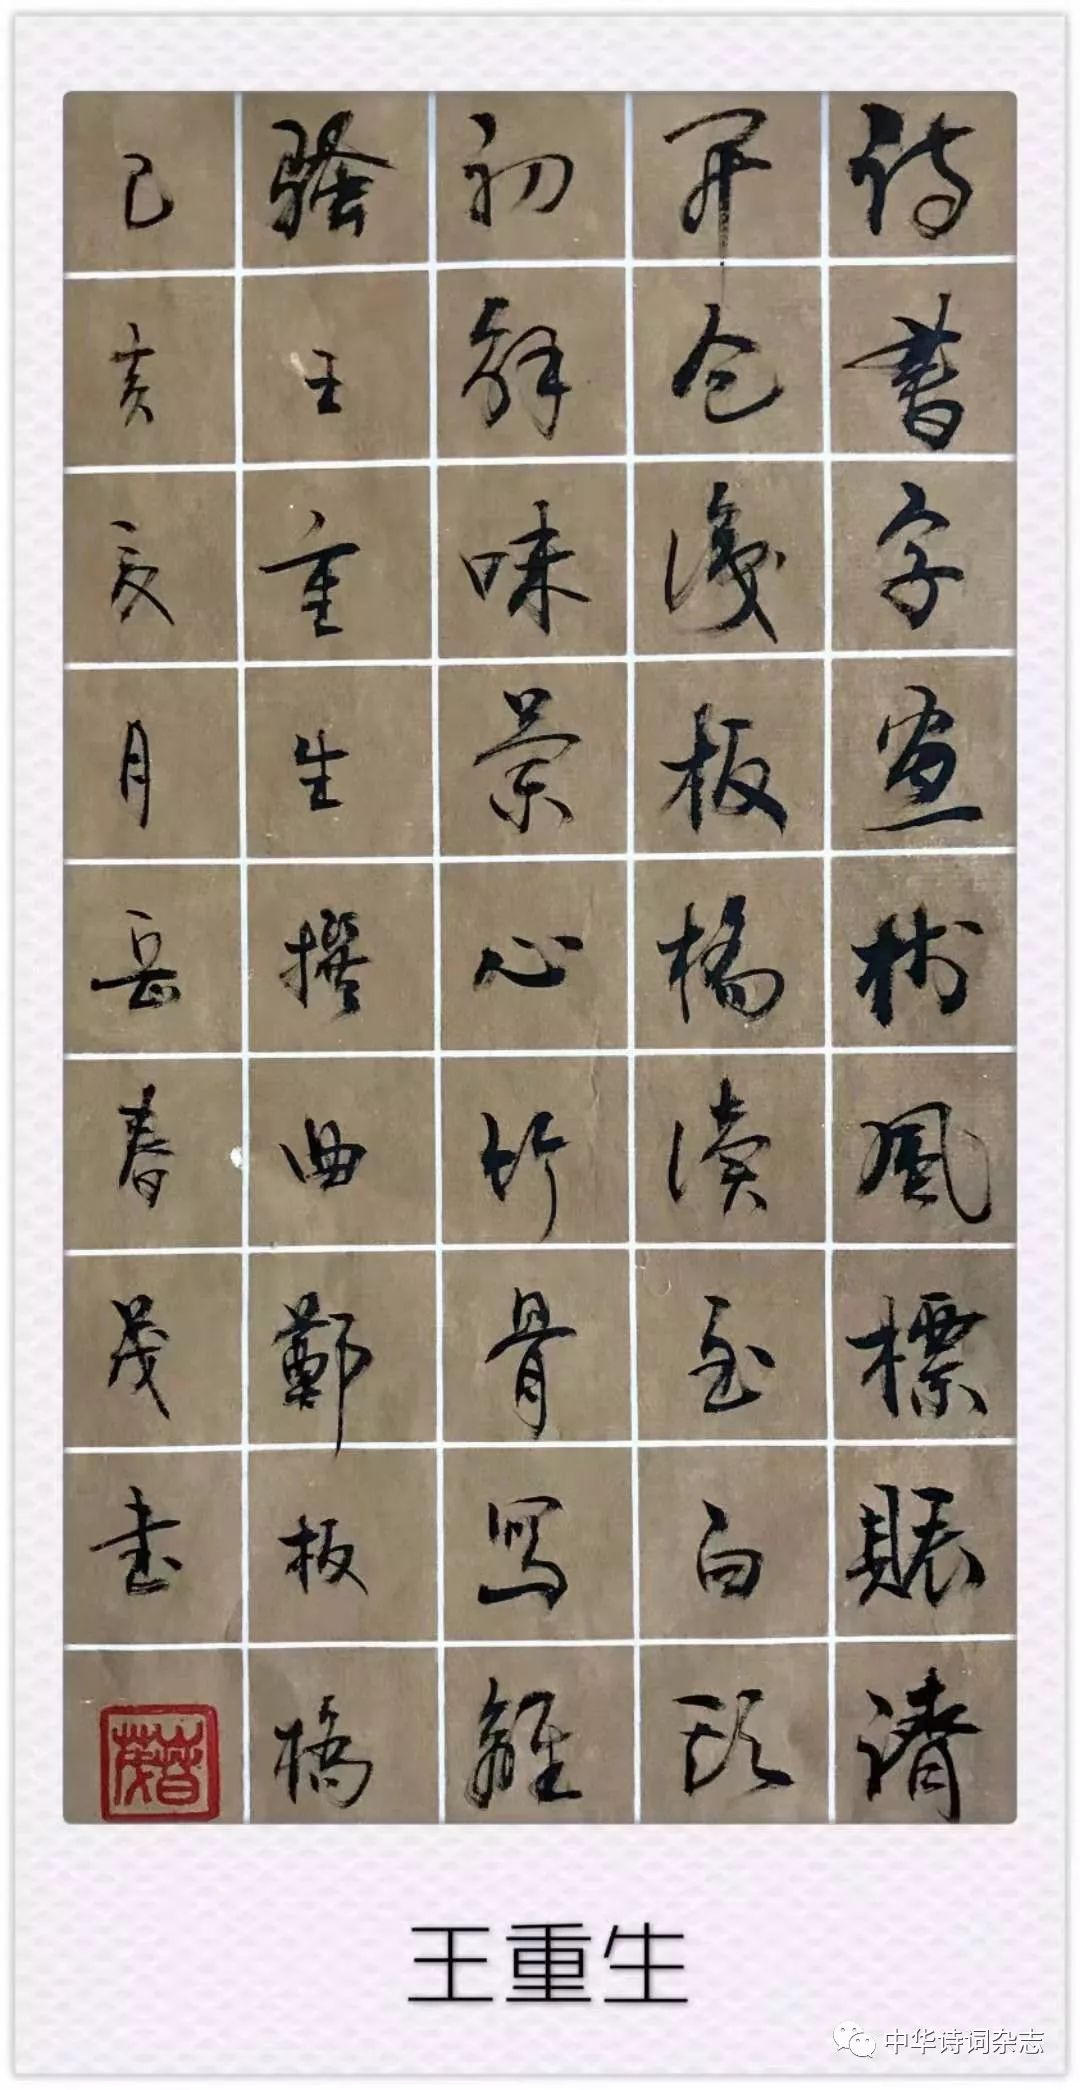 詩書字畫樹風標賑濟
開倉識板橋讀至白頭
初解味蘭心竹骨寫離
騷王重生撰曲鄭板橋
己亥亥月岳春茂書
王重生
中华诗词杂志